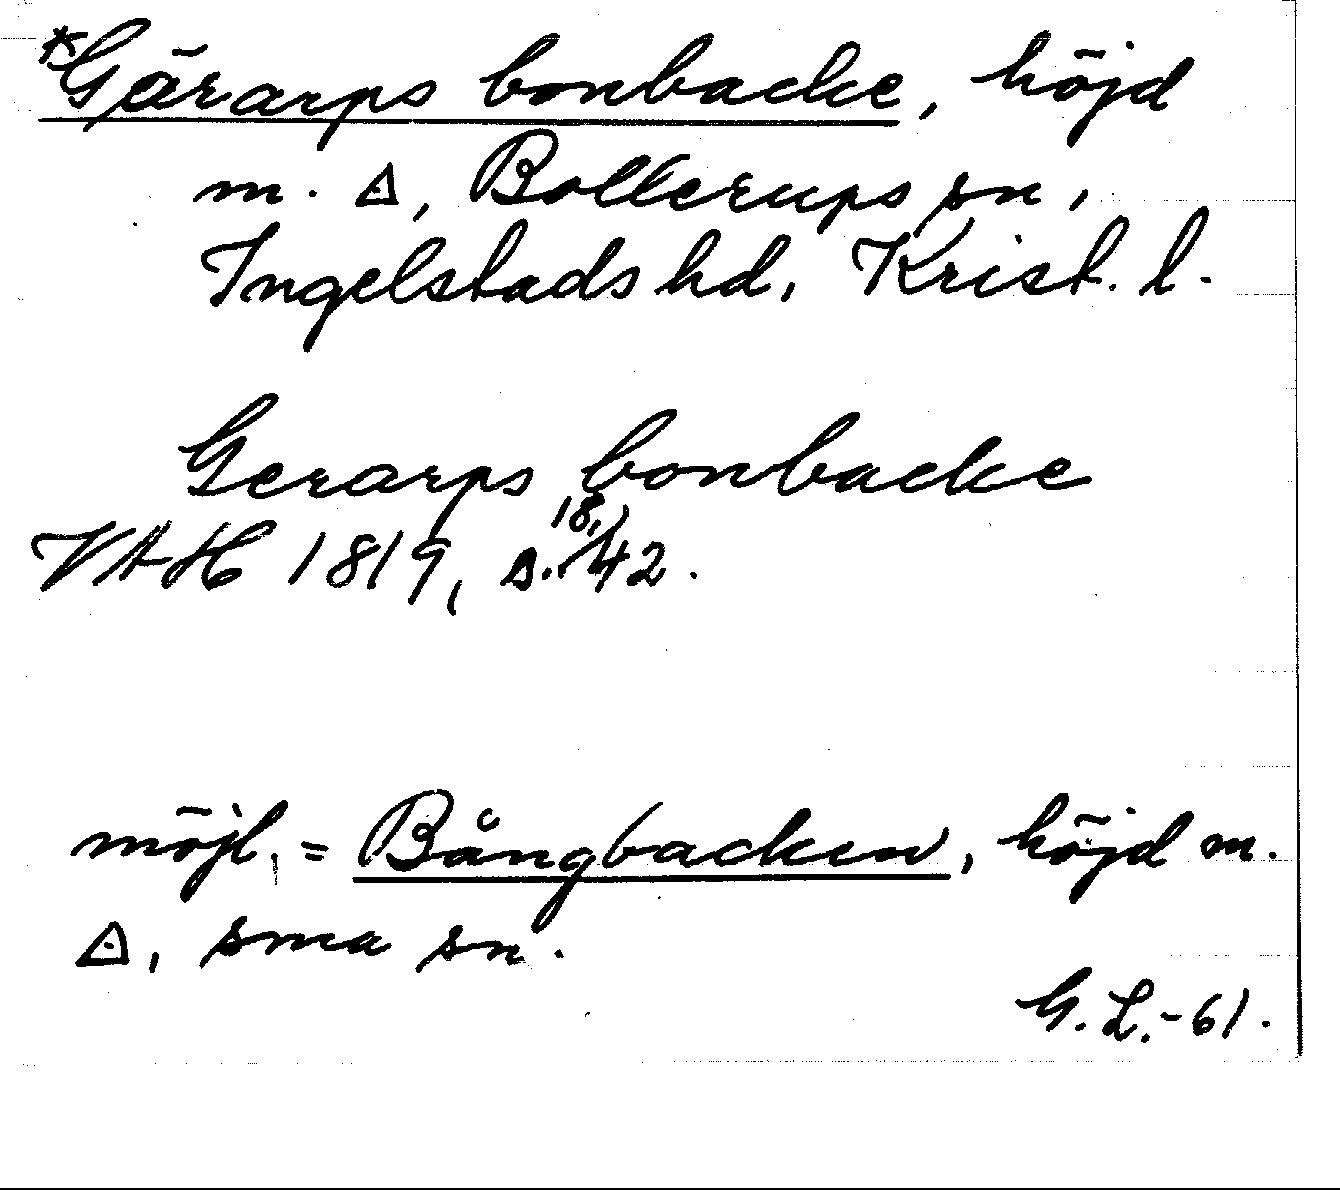 *Gärarps bonbacke, höjd
m. △, Bollerups sn,
Ingelstads hd, Krist. l.
Gerarps bonbacke
VAH 1819, s. 18, 42.
möjl. = Bångbacken, höjd m.
△, sma sn.
G.L.-61.